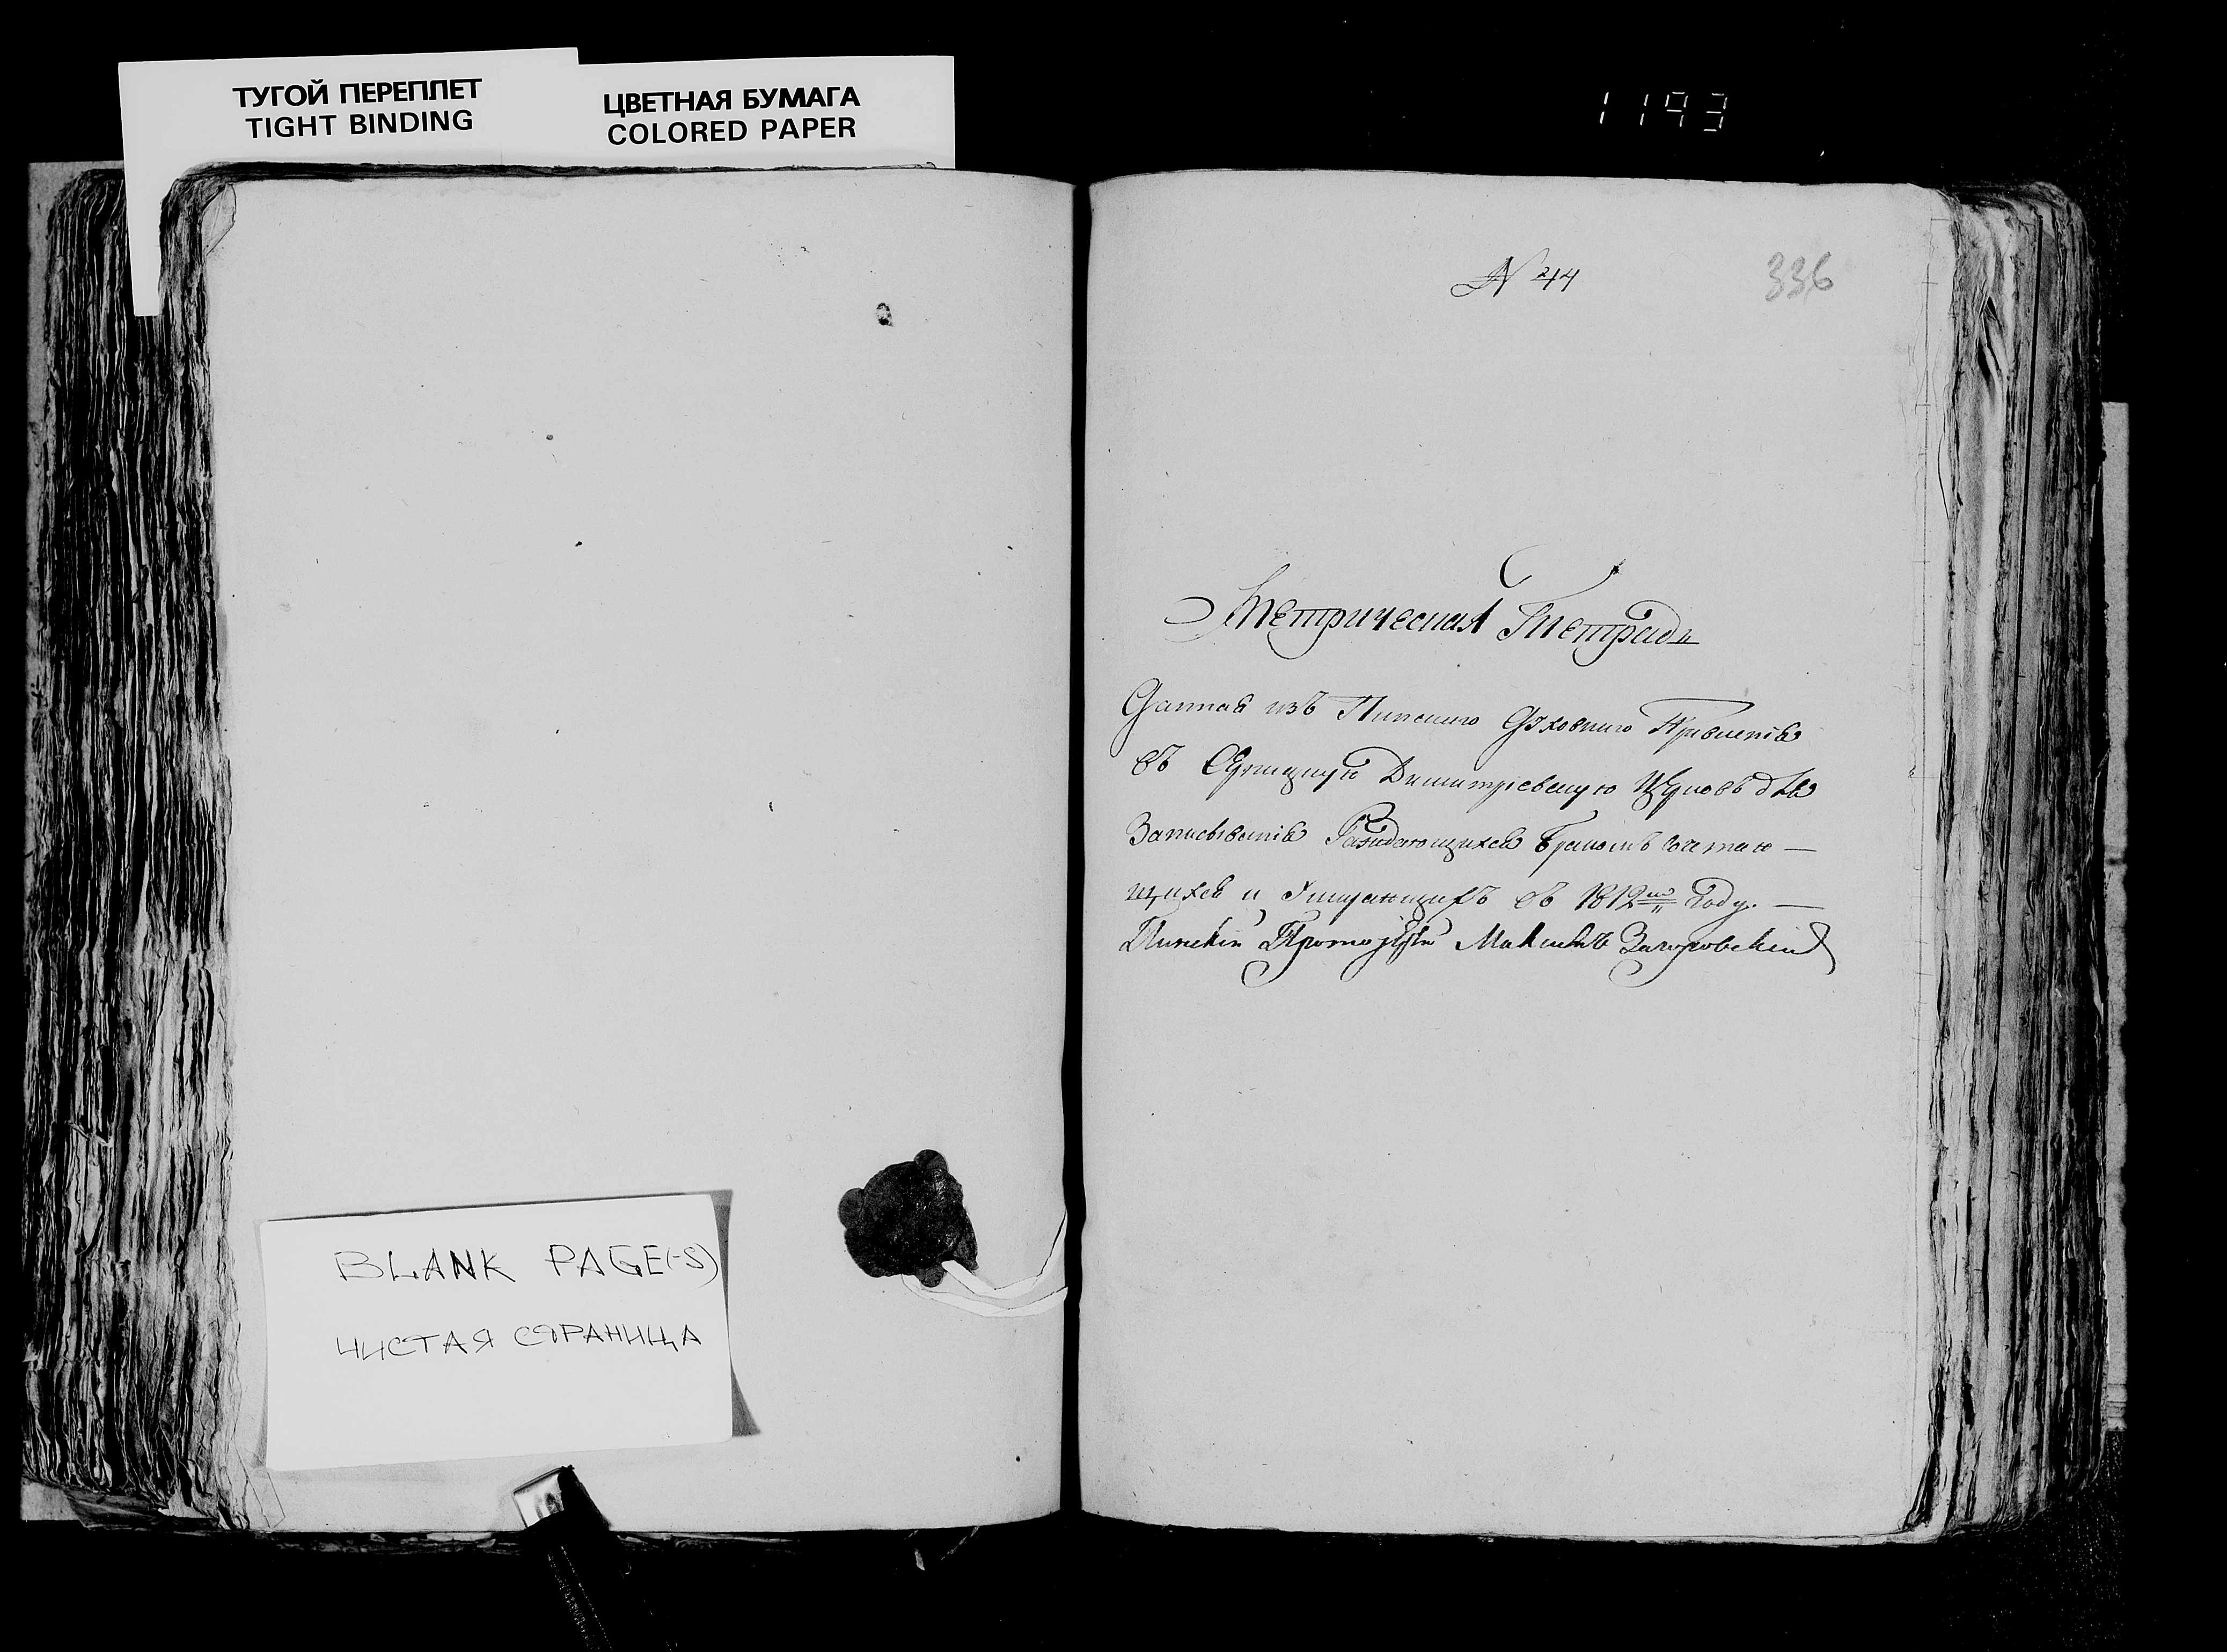 ТУГОЙ ПЕРЕПЛЕТ
TIGHT BINDING
ЦВЕТНАЯ БУМАГА
COLORED PAPER
1193
N 44
336
Метрическая Тетрадь
Данная изъ Пинскаго Духовнаго Правленія
въ Димитріевскую Церковь для
Записыванія Раждающихся Бракомъ сочетаю —
щихся и Умирающихъ въ 1812мъ Году. —
Пинскій Протоіерей Максимъ
BLANK PAGE(-S)
ЧИСТАЯ СТРАНИЦА